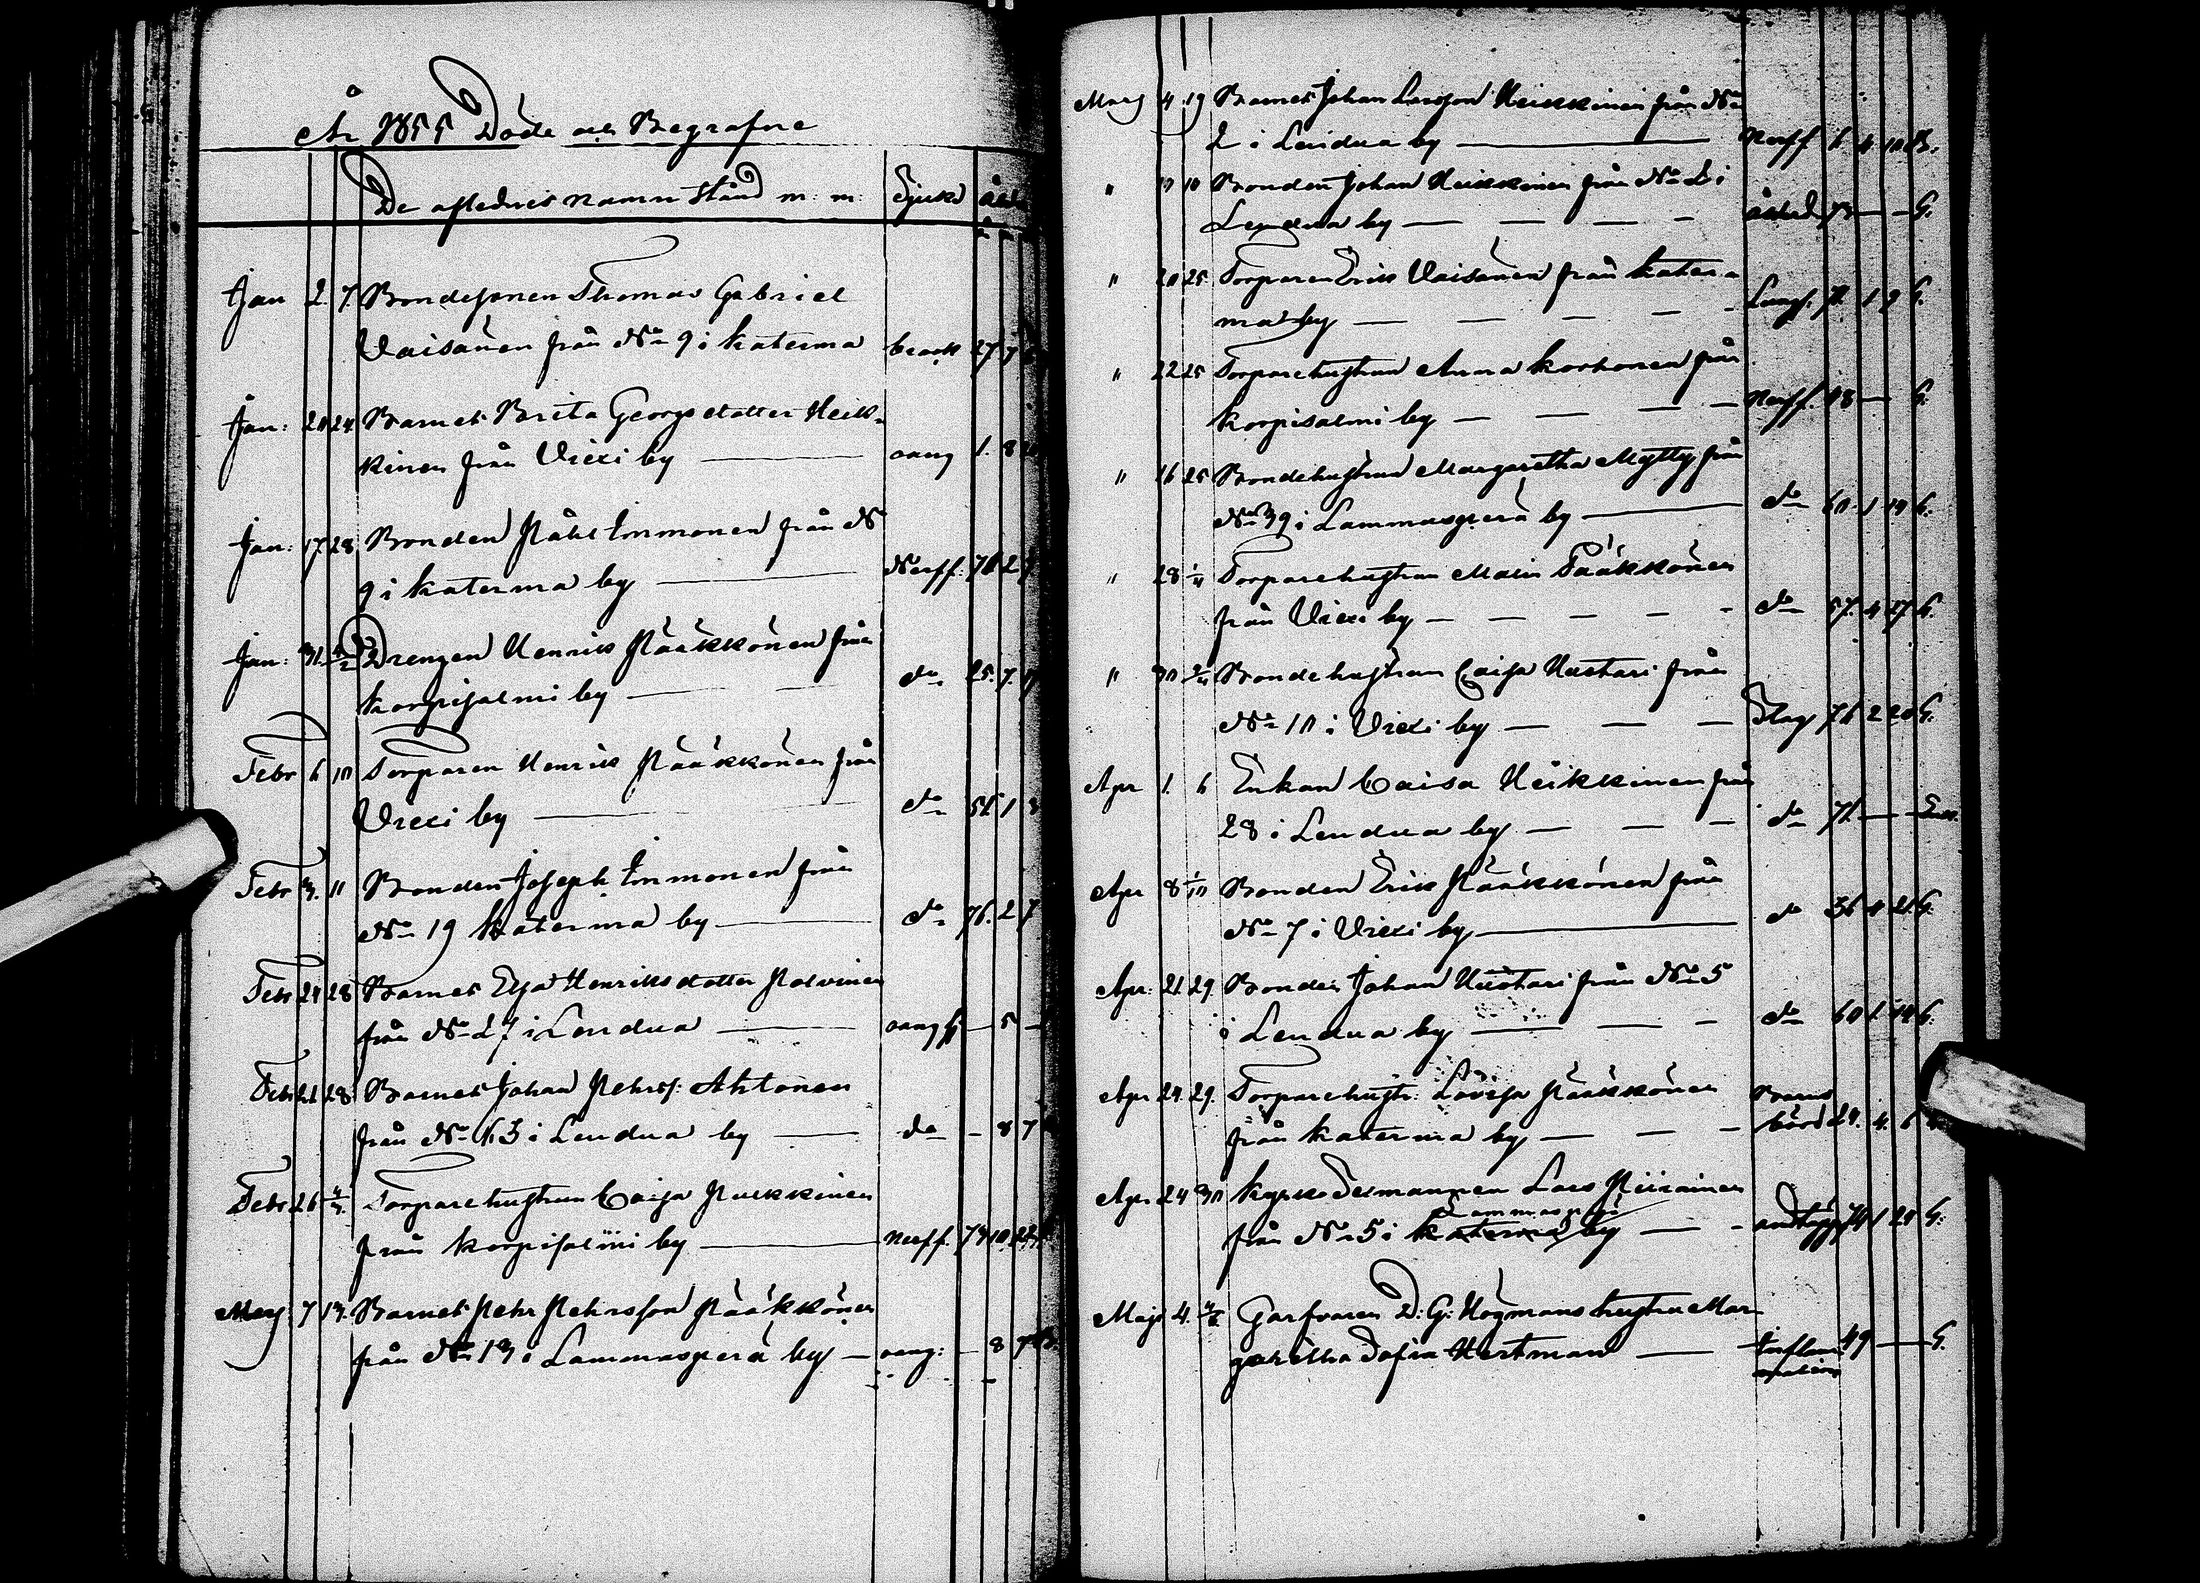 År 1855 Döde och Begrafne
De aflednes namn stånd m: m: Sjukd
Jan 2. 7. Bondesonen Thomas Gabriel
Vaisänen från No 9 i Katerma 27 7
Jan: 20 24 Barnet Brita Georgsdotter Heik-
kinen från Viexi by — 1. 8
Jan: 17. 28 Bonden Påhl Immonen från No
9 i Katerma by — Nerff. 76 2
Jan: 31. 4/2 Drengen Henrik Pääkkönen från
Korpisalmi by — do 25. 7.
Febr 6 10 Torparen Henrik Pääkkönen från
Viexi by — do 1
Febr 3. 11 Bonden Joseph Immonen från
No 19 Katerma by — do 76. 2 7
Febr 24 28 Barnet Henriksdotter
från No 27 i Lendua — — 5 —
Febr 21 28 Barnet Johan Pehrs: Ahtonen
från No i Lendua by — do — 8 7
Febr 26 4/3. Torparehustrun Caisa
från Korpisalmi by — Nerff. 73 10
Mars 7 13. Barnet Pehr Pehrsson Pääkkönen
från No 13 i Lammasperä by — — 8
Mars 4 19 Barnet Johan Larsson Heikkinen från No
2 i Lendua by — Nerff 6 4 10 B.
" 10 Bonden Johan Heikkinen från No 2 i
Lendua by — — — — 73 — — G.
" 20 25 Torparen Erik Vaisänen från Kater-
ma by — — — — — 1 9 G.
" 22 25 Torparehustrun Anna Korhonen från
Korpisalmi by — — — — Nerff. — G.
" 16 25 Bondehustrun Margaretha Mytty från
No 39 i Lammasperä by — do 60 1 G.
" 28 1/4 Torparehustrun Malin Pääkkönen
från Viexi by — — — — — do 57. 4 27 G.
" 30 Bondehustrun Caisa Huotari från
No 10 i Viexi by — — — Slag 76 2 20 G.
Apr 1. 6 Enkan Caisa Heikkinen från
28 i Lendua by — — — do —
Apr 8 Bonden Erik Pääkkönen från
No 7 i Viexi by — do 36 G.
Apr: 21 29. Bonden Johan Huotari från No 5
i Lendua by — — — do 60 1 G.
Apr 24 29. Torparehustr: Lovisa Pääkkönen Barns
från Katerma by — — — börd 4. 6
Apr 24 30 Lars Piirainen
Lammasperä
från No 5 i Katerma by — — andtäppa 1 G.
Maji 4. Garfvaren D: G: Högmans hustru Mar-
garetha Sofia Hertman — Inflam- 49 — G.
mation